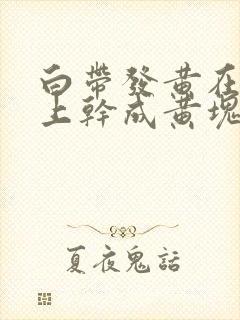 白帶發黃在
上幹成黃塊
夏夜鬼話